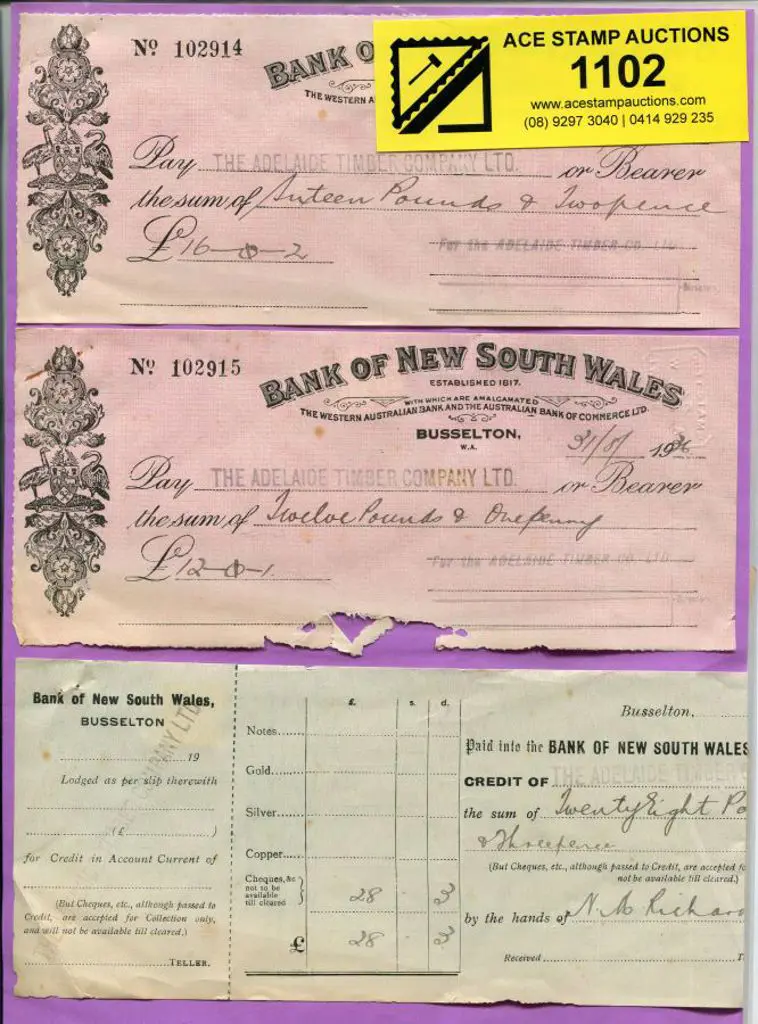 Nº 102914
BANK O
THE WESTERN A
ACE STAMP AUCTIONS
1102
www.acestampauctions.com
(08) 9297 3040 | 0414 929 235
Pay THE ADELAIDE TIMBER COMPANY LTD. or Bearer
the sum of Sixteen Pounds & Twopence
£16-0-2
For the ADELAIDE TIMBER CO. LTD
Nº 102915
BANK OF NEW SOUTH WALES
ESTABLISHED 1817.
WITH WHICH ARE AMALGAMATED
THE WESTERN AUSTRALIAN BANK AND THE AUSTRALIAN BANK OF COMMERCE LTD.
BUSSELTON,
W.A.
31/8/1936
Pay THE ADELAIDE TIMBER COMPANY LTD. or Bearer
the sum of Twelve Pounds & Onepenny
£12-0-1.
For the ADELAIDE TIMBER CO. LTD
Bank of New South Wales,
BUSSELTON
19
Lodged as per slip therewith
(£ )
for Credit in Account Current of
(But Cheques, etc., although passed to
Credit, are accepted for Collection only,
and will not be available till cleared.)
TELLER.
£. s. d.
Notes
Gold
Silver
Copper
Cheques, &c
not to be
available
till cleared
28 - 3
£ 28 - 3
Busselton,
Paid into the BANK OF NEW SOUTH WALES
CREDIT OF THE ADELAIDE TIMBER
the sum of Twenty Eight Po
& Threepence
(But Cheques, etc., although passed to Credit, are accepted fo
not be available till cleared.)
by the hands of N. M. Richard
Received